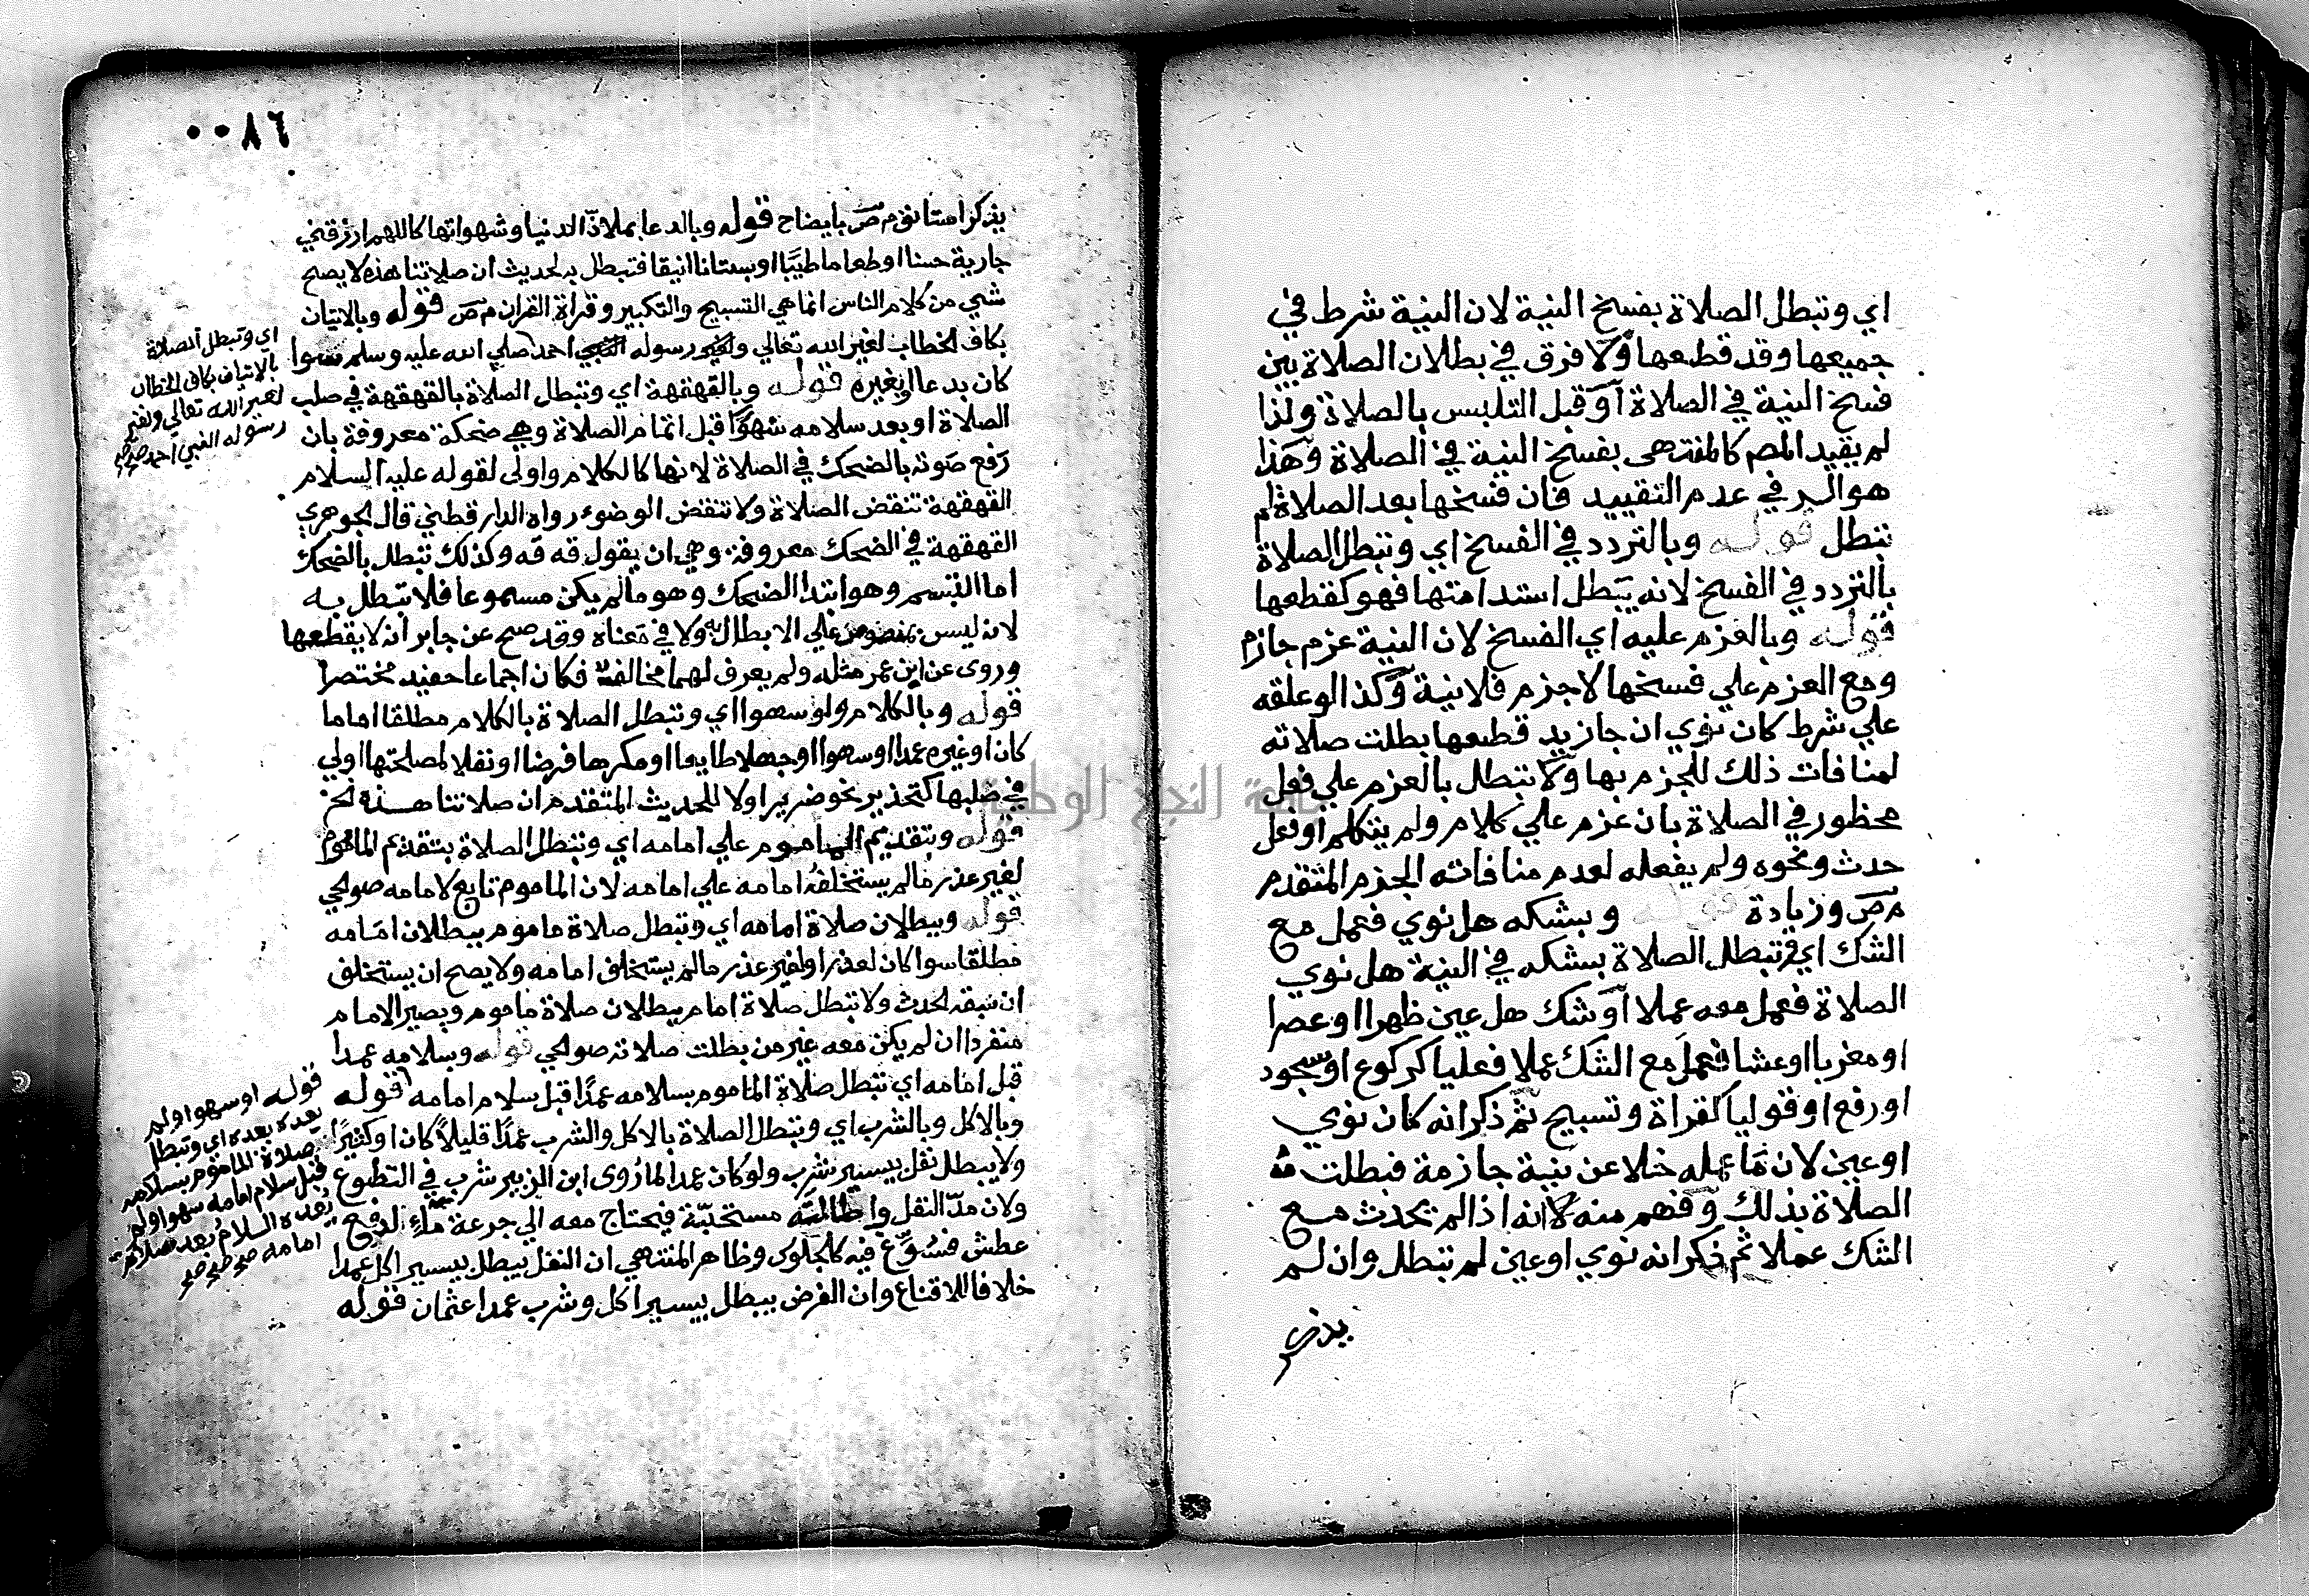 اي وتبطل الصلاة بفسخ النية لان النية شرط في
جميعها وقد قطعها ولا فرق في بطلان الصلاة بين
فسخ النية في الصلاة او قبل التلبس بالصلاة ولذا
لم يقيد المص كالمنتهى بفسخ النية في الصلاة وهذا
هو السر في عدم التقييد فان فسخها بعد الصلاة لم
تبطل قوله وبالتردد في الفسخ اي وتبطل الصلاة
بالتردد في الفسخ لانه يبطل استدامتها فهو كقطعها
قوله وبالعزم عليه اي الفسخ لان النية عزم جازم
ومع العزم علي فسخها لا جزم فلا نية وكذا لو علقه
علي شرط كان نوي ان جا زيد قطعها بطلت صلاته
لمنافات ذلك للجزم بها ولا تبطل بالعزم علي فعل
محظور في الصلاة بان عزم علي كلام ولم يتكلم او فعل
حدث ونحوه ولم يفعله لعدم منافاته الجزم المتقدم
م ص وزيادة قوله وبشكه هل نوي فعمل مع
الشك اي وتبطل الصلاة بشكه في النية هل نوي
الصلاة فعمل معه عملا او شك هل عين ظهرا او عصرا
او مغربا او عشا فعمل مع الشك عملا فعليا كركوع او سجود
او رفع او قوليا كقراة وتسبيح ثم ذكر انه كان نوي
او عين لان ما عمله خلا عن نية جازمة فبطلت
الصلاة بذلك وفهم منه لانه اذا لم يحدث مع
الشك عملا ثم ذكر انه نوي او عين لم تبطل وان لم
يذكر
٠٠٨٦
يذكر استانف م ص بايضاح قوله وبالدعا بملاذ الدنيا وشهواتها كاللهم ارزقني
جارية حسنا او طعاما طيبا او بستانا انيقا فتبطل به لحديث ان صلاتنا هذه لا يصح
شي من كلام الناس انما هي التسبيح والتكبير وقراة القران م ص قوله وبالاتيان
بكاف الخطاب لغير الله تعالي ولغير رسوله النبي احمد صلي الله عليه وسلم سوا
كان بدعا او بغيره قوله وبالقهقهة اي وتبطل الصلاة بالقهقهة في صلب
الصلاة او بعد سلامه سهوا قبل اتمام الصلاة وهي ضحكة معروفة بان
رفع صوته بالضحك في الصلاة لانها كالكلام واولى لقوله عليه السلام
القهقهة تنقض الصلاة ولا تنقض الوضوء رواه الدارقطني قال الجوهري
القهقهة في الضحك معروفة وهي ان يقول قه قه وكذلك تبطل بالضحك
اما التبسم وهو ابتدا الضحك وهو ما لم يكن مسموعا فلا تبطل به
لانه ليس بمنصوص علي الابطال به ولا في معناه وقد صح عن جابر انه لا يقطعها
وروى عن ابن عمر مثله ولم يعرف لهما مخالف فكان اجماعا حفيد مختصرا
قوله وبالكلام ولو سهوا اي وتبطل الصلاة بالكلام مطلقا اماما
كان او غيره عمدا او سهوا او جهلا طايعا او مكرها فرضا او نفلا لمصلحتها اولي
في صلبها كتحذير نحو ضرير او لا للحديث المتقدم ان صلاتنا هذه الخ
قوله وبتقديم الماموم علي امامه اي وتبطل الصلاة بتقدم الماموم
لغير عذر ما لم يستخلفه امامه علي امامه لان الماموم تابع لامامه صوالحي
قوله وببطلان صلاة امامه اي وتبطل صلاة ماموم ببطلان امامه
مطلقا سوا كان لعذر او لغير عذر ما لم يستخلف امامه ولا يصح ان يستخلف
ان سبقه الحدث ولا تبطل صلاة امام ببطلان صلاة ماموم ويصير الامام
منفردا ان لم يكن معه غير من بطلت صلاته صوالحي قوله وبسلامه عمدا
قبل امامه اي تبطل صلاة الماموم بسلامه عمدا قبل سلام امامه قوله
وبالاكل وبالشرب اي وتبطل الصلاة بالاكل والشرب عمدا قليلا كان او كثيرا
ولا يبطل نفل بيسير شرب ولو كان عمدا لما روى ابن الزبير شرب في التطوع
ولان مد النفل واطالته مستحبة فيحتاج معه الي جرعة ماء لدفع
عطش فسوغ فيه كالجلوس وظاهر المنتهى ان النفل يبطل بيسير اكل عمدا
خلافا للاقناع وان الفرض يبطل بيسير اكل وشرب عمدا عثمان قوله
اي وتبطل الصلاة
بالاتيان بكاف الخطاب
لغير الله تعالي ولغير
رسوله النبي احمد صح صح
قوله او سهوا ولم
يعده بعده اي وتبطل
صلاة الماموم بسلامه
قبل سلام امامه سهوا ولم
يعده السلام بعد سلام
امامه صح صح صح
جامعة النجاح الوطنية